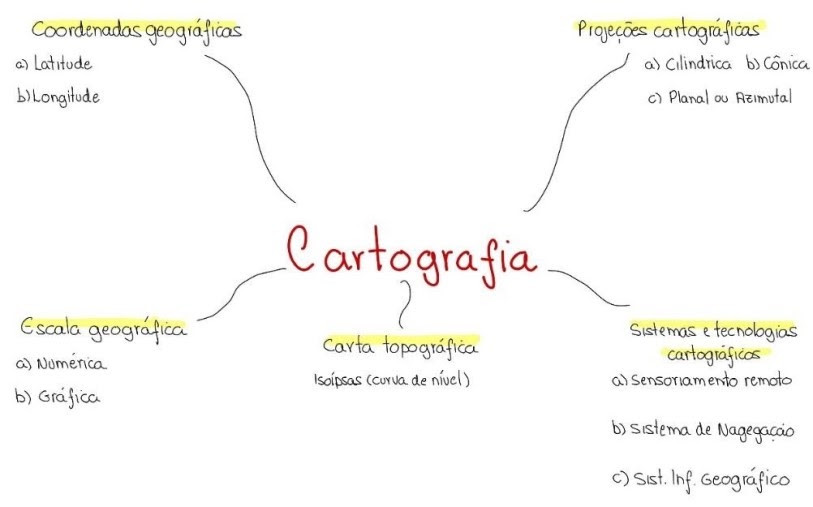 Coordenadas geográficas
a) Latitude
b) Longitude
Projeções cartográficas
a) Cilindrica b) Cônica
c) Planal ou Azimutal
Cartografia
Escala geográfica
a) Numérica
b) Gráfica
Carta topográfica
Isoípsas (curva de nível)
Sistemas e tecnologias
cartográficos
a) Sensoriamento remoto
b) Sistema de Nagegação
c) Sist. Inf. Geográfico